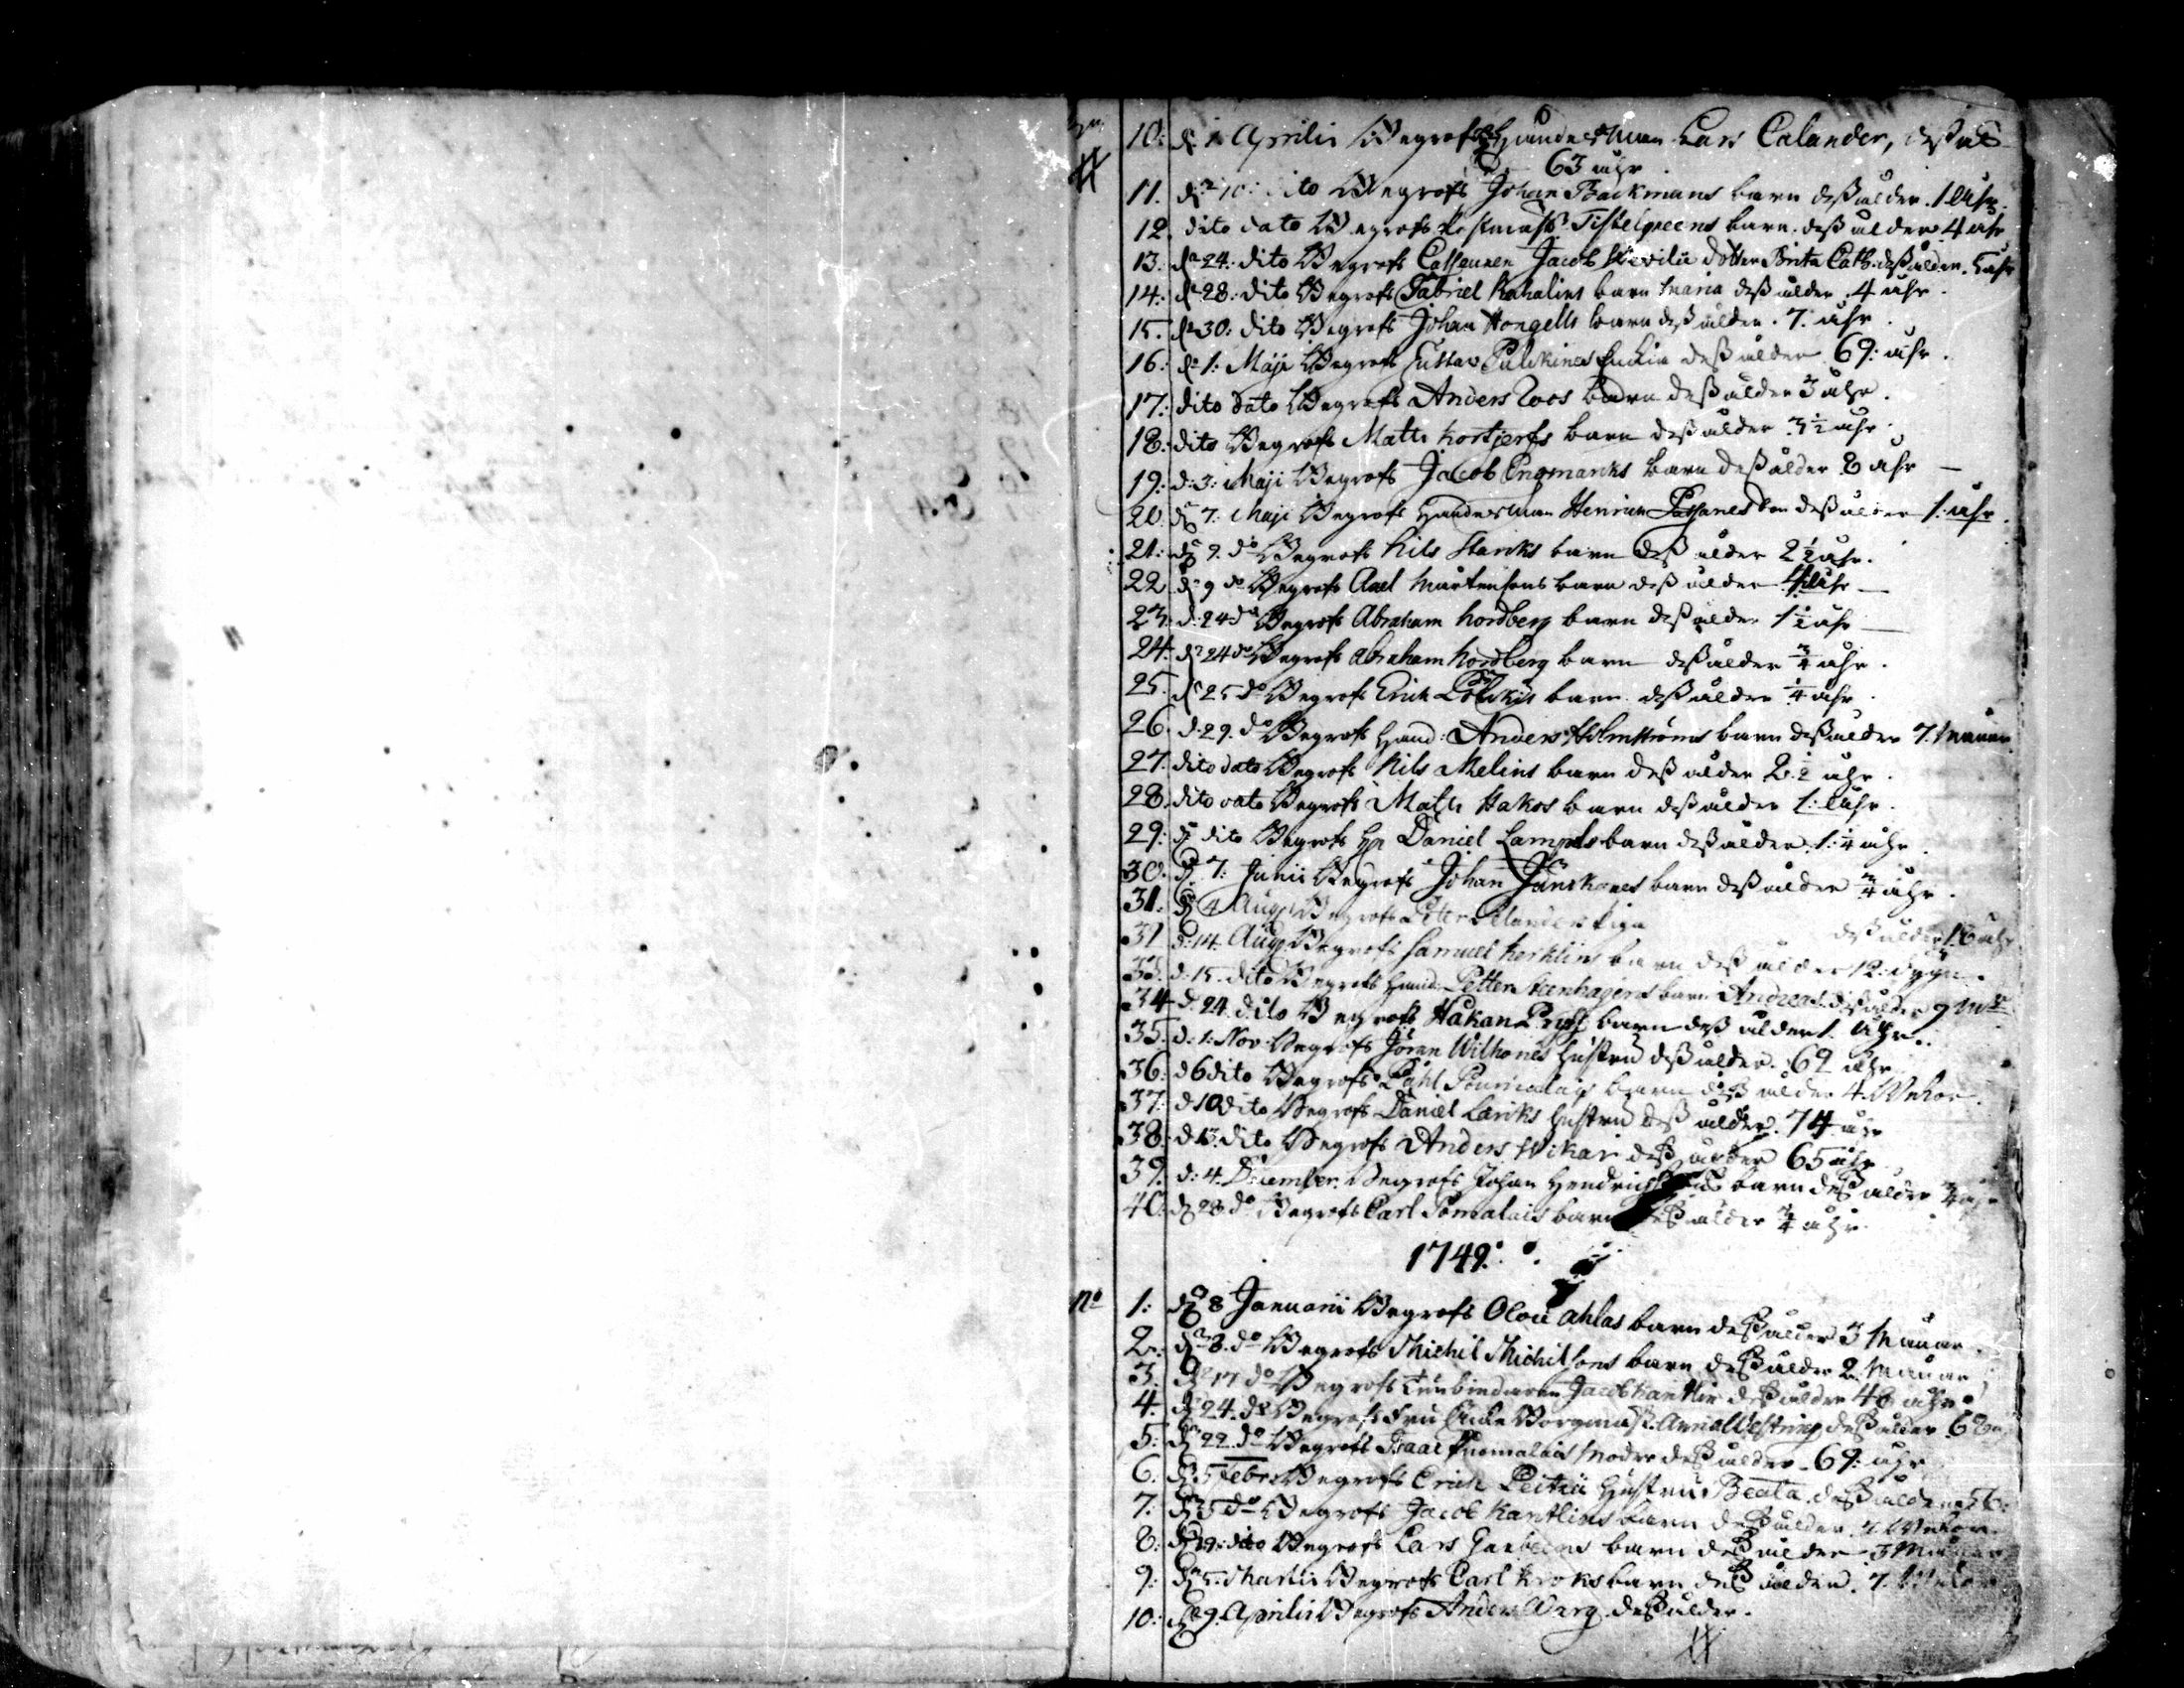 10: d. 1 Aprilis Begrofs Handelsman Lars Calander, deß ald
63 åhr
11. d. 10: dito Begrofs Johan Backmans barn deß ålder. 1 åhr.
12. dito dato Begrofs Tistelgreens barn. deß ålder 4 åhr
13. d. 24: dito Begrofs Jacob dotter Brita Cath. deß ålder. 5 åhr
14: d. 28: dito Begrofs Gabriel Kahalins barn Maria deß ålder. 4 åhr.
15. d. 30: dito Begrofs Johan Hongells barn deß ålder. 7. åhr.
16: d. 1: Maji Begrofs Gustav Pulckines Enckia deß ålder 69: åhr.
17: dito dato Begrofs Anders Roos barn deß ålder 3 åhr.
18: dito Begrofs Matts Kortjerfs barn deß ålder 3 1/2 åhr.
19: d: 3: Maji Begrofs Jacob Engmarcks barn deß ålder 8 åhr —
20. d. 7: Maji Begrofs Handelsman Henrich Son deß ålder 1. åhr.
21: d. 9. do Begrofs Nils Starcks barn deß ålder 2 1/2 åhr.
22 d. 9 do Begrofs Axel Mårtensons barn deß ålder åhr —
23. d: 24 do Begrofs Abraham Nordberg barn deß ålder 1 1/2 åhr —
24. d. 24 do Begrofs Abraham Nordberg barn deß ålder 3/4 åhr.
25. d. 25 do Begrofs Erich barn deß ålder 1/4 åhr.
26. d. 29. do Begrofs Hand: Anders Holmströms barn deß ålder 7. Månar.
27. dito dato Begrofs Nils Melins barn deß ålder 2 1/2 åhr.
28. dito dato Begrofs Matts Hakos barn deß ålder 1: åhr.
29: d. dito Begrofs Hr Daniel barn deß ålder. 1: 1/4 åhr.
30. d. 7: Junii Begrofs Johan Junckanes barn deß ålder 3/4 åhr.
31. d. 4 Aug: Begrofs Peter piga deß ålder 18 åhr
31 d: 14. Aug: Begrofs Samuel Kerklins barn deß ålder 12: dygn.
33. d. 15. dito Begrofs Hand: Petter Steenhagens barn Andreas. deß ålder 9
34 d. 24. dito Begrofs Håkan barn deß ålder 1. åhr.
35. d: 1: Nov: Begrofs Jören Wilhones Hustru deß ålder. 69 åhr
36: d 6 dito Begrofs Påhl barn deß ålder 4. Wekor.
37: d 10 dito Begrofs Daniel Larcks Hustru deß ålder. 74 åhr
38. d. 13. dito Begrofs Anders Wikar deß ålder 65 åhr
39. d: 4. December. Begrofs Johan barn deß ålder 3/4 åhr
40: d. 28 do Begrofs Carl Somalais barn deß ålder 3/4 åhr.
1749.
No 1: d. 8 Januarii Begrofs Olov Ahlas barn deß ålder 3 Månar.
2. d. 8. do Begrofs Michel Michelsons barn deß ålder 2. Månar.
3. d. 17 do Begrofs Jacob Kantlin deß ålder 48 åhr.
4. d. 24. do Begrofs Fru Borgmäst. Anna Westring deß ålder 68
5: d. 22. do Begrofs Isaac Puomalais Moder deß ålder. 69: åhr
6. d. 5 Febr: Begrofs Erich Hustru Beata. deß ålder 56:
7: d. 5 do Begrofs Jacob Kantlins barn deß ålder. 7. Wekor.
8: d. 19: dito Begrofs Lars barn deß ålder 3 Månar
9: d. 5: Martii Begrofs Carl Kroks barn deß ålder. 7. Wekor
10: d. 9. Aprilis Begrofs Anders Warg deß ålder.